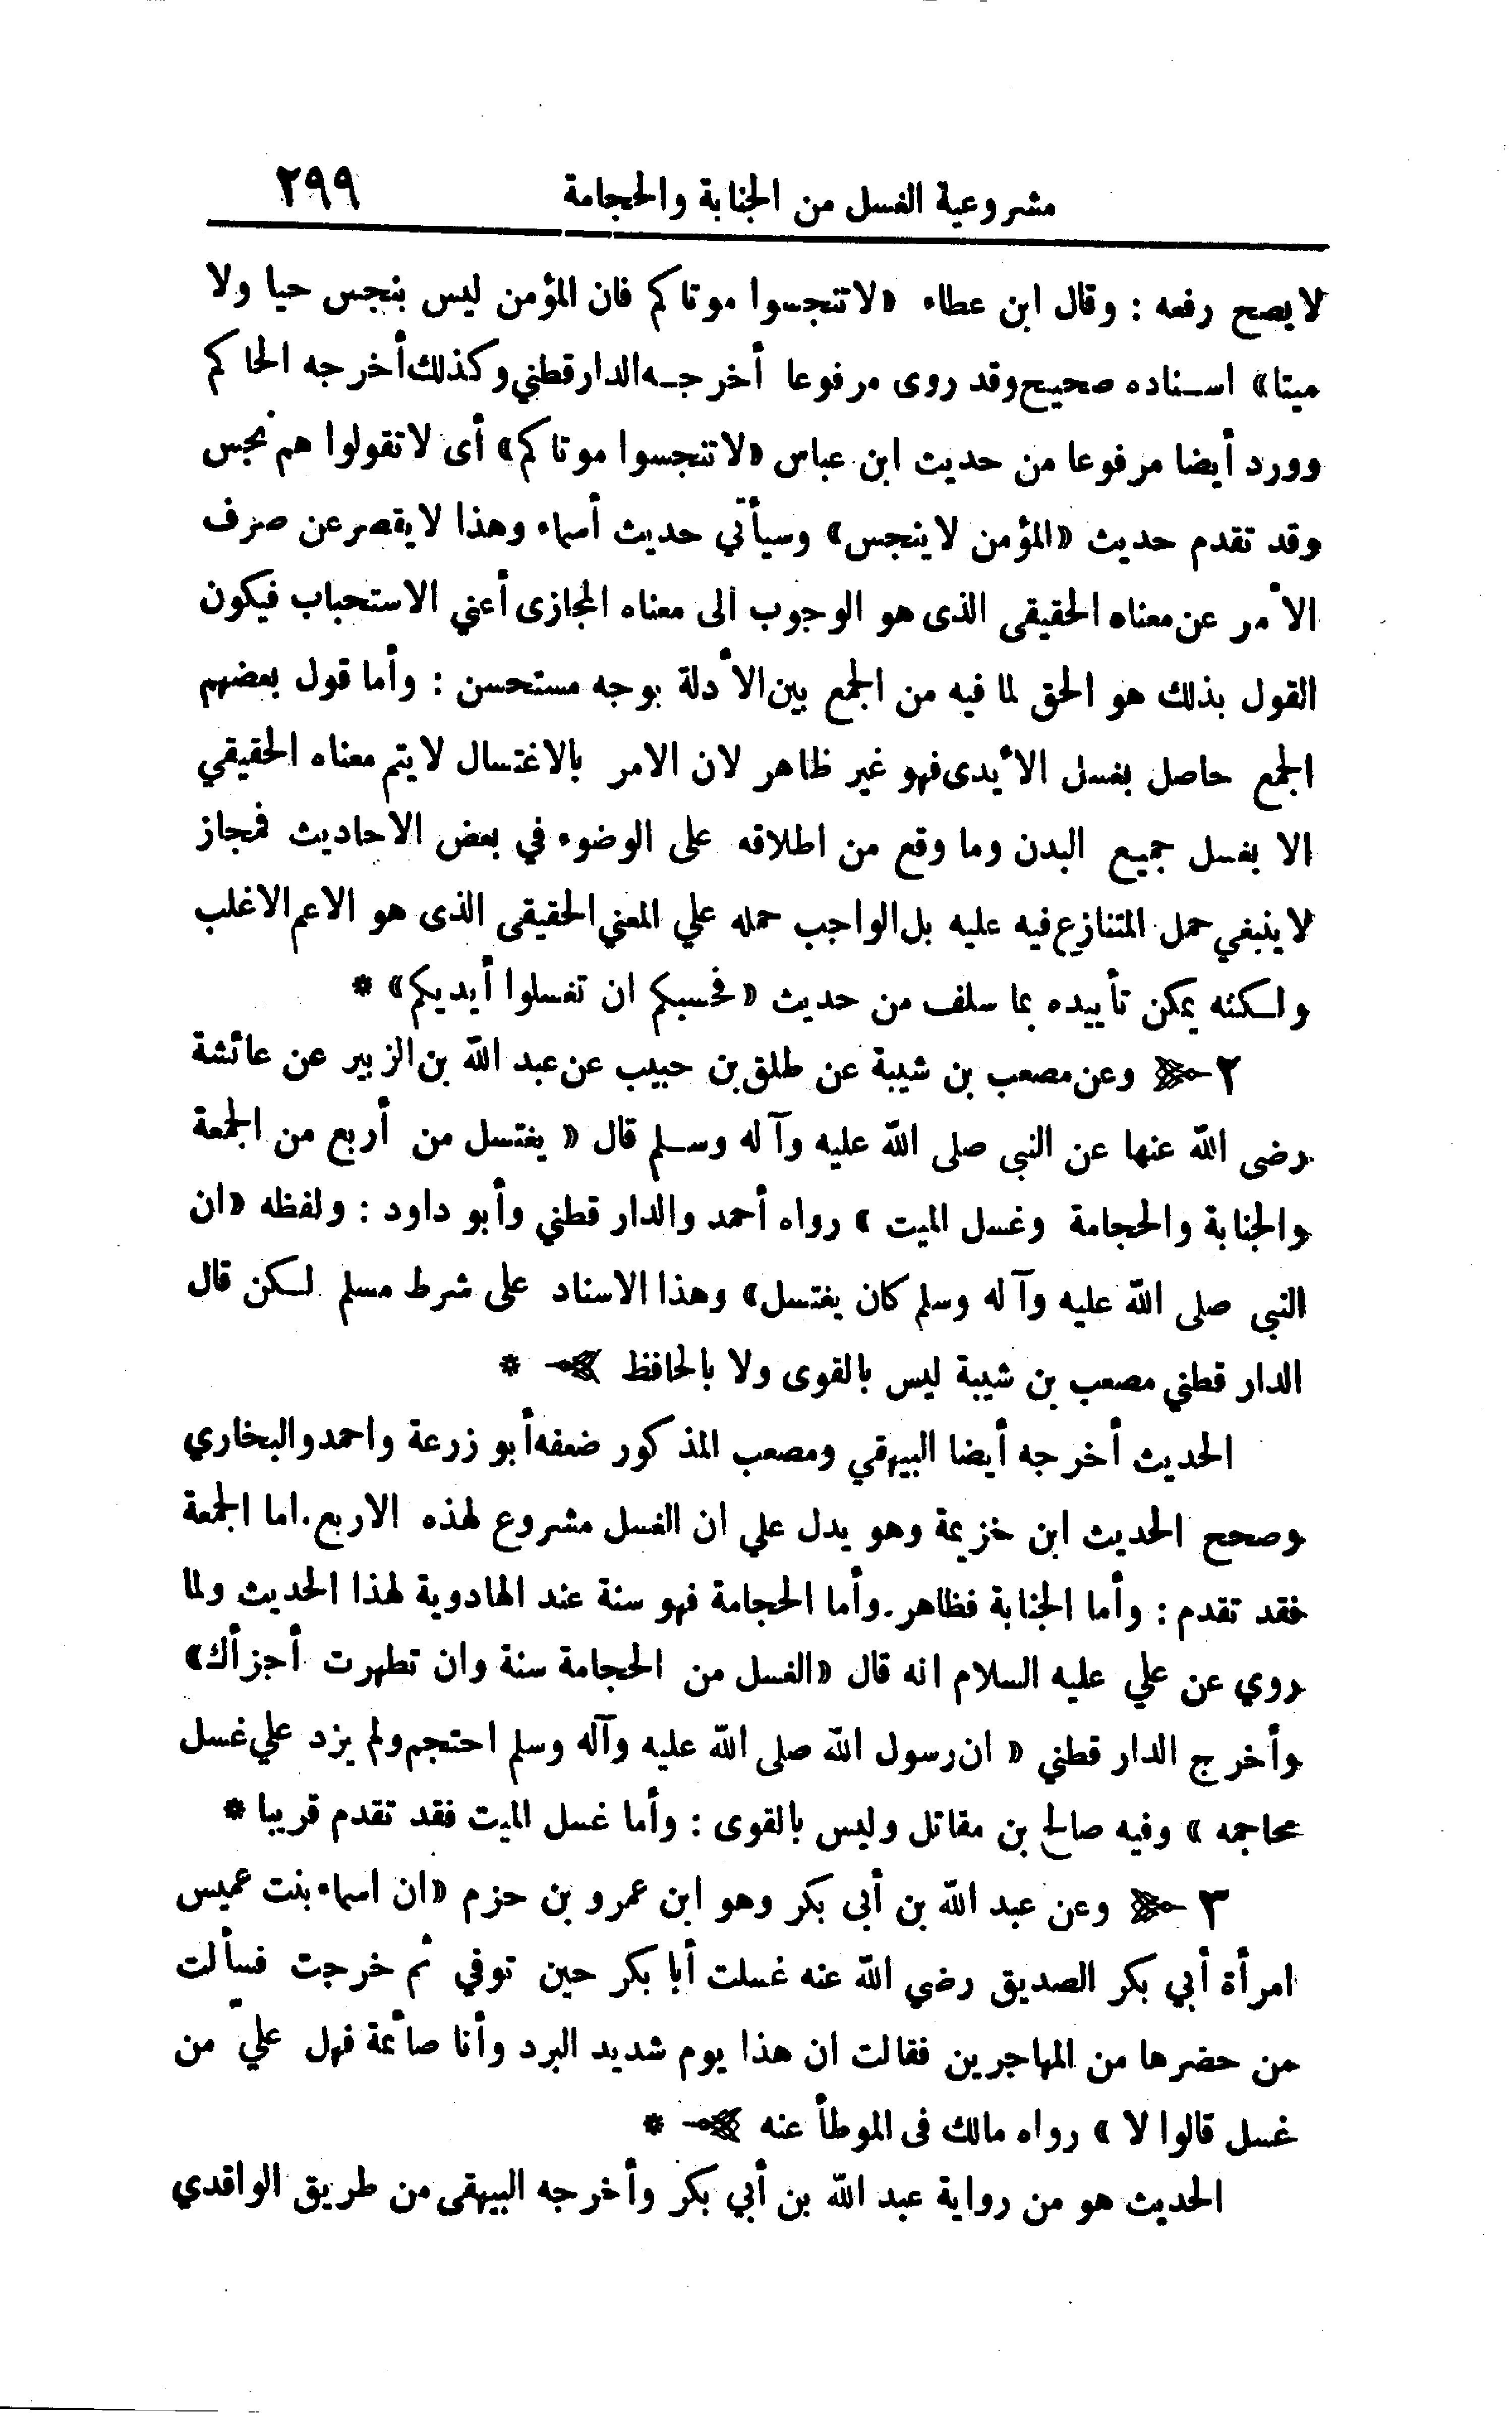 مشروعية الغسل من الجنابة والحجامة ٢٩٩
لا يصح رفعه : وقال ابن عطاء «لا تنجسوا موتاكم فان المؤمن ليس بنجس حيا ولا
ميتا» اسناده صحيح وقد روى مرفوعا أخرجه الدارقطني وكذلك أخرجه الحاكم
وورد أيضا مرفوعا من حديث ابن عباس «لا تنجسوا موتاكم» أى لا تقولوا هم نجس
وقد تقدم حديث «المؤمن لا ينجس» وسيأتي حديث أسماء وهذا لا يقصر عن صرف
الأمر عن معناه الحقيقى الذى هو الوجوب الى معناه المجازى أعني الاستحباب فيكون
القول بذلك هو الحق لما فيه من الجمع بين الأدلة بوجه مستحسن : وأما قول بعضهم
الجمع حاصل بغسل الأيدى فهو غير ظاهر لان الامر بالاغتسال لا يتم معناه الحقيقي
الا بغسل جميع البدن وما وقع من اطلاقه على الوضوء في بعض الاحاديث فمجاز
لا ينبغي حمل المتنازع فيه عليه بل الواجب حمله علي المعني الحقيقى الذى هو الاعم الاغلب
ولكنه يمكن تأييده بما سلف من حديث «فحسبكم ان تغسلوا أيديكم» *
٢ وعن مصعب بن شيبة عن طلق بن حبيب عن عبد الله بن الزبير عن عائشة
رضى الله عنها عن النبى صلى الله عليه وآله وسلم قال « يغتسل من أربع من الجمعة
والجنابة والحجامة وغسل الميت » رواه أحمد والدار قطني وأبو داود : ولفظه «ان
النبى صلى الله عليه وآله وسلم كان يغتسل» وهذا الاسناد على شرط مسلم لكن قال
الدار قطني مصعب بن شيبة ليس بالقوى ولا بالحافظ *
الحديث أخرجه أيضا البيهقي ومصعب المذكور ضعفه أبو زرعة واحمد والبخاري
وصحح الحديث ابن خزيمة وهو يدل علي ان الغسل مشروع لهذه الاربع . اما الجمعة
فقد تقدم : وأما الجنابة فظاهر . وأما الحجامة فهو سنة عند الهادوية لهذا الحديث ولما
روي عن علي عليه السلام انه قال «الغسل من الحجامة سنة وان تطهرت أجزأك»
وأخرج الدار قطني « ان رسول الله صلى الله عليه وآله وسلم احتجم ولم يزد علي غسل
محاجمه » وفيه صالح بن مقاتل وليس بالقوى : وأما غسل الميت فقد تقدم قريبا *
٣ وعن عبد الله بن أبى بكر وهو ابن عمرو بن حزم «ان اسماء بنت عميس
امرأة أبي بكر الصديق رضي الله عنه غسلت أبا بكر حين توفي ثم خرجت فسألت
من حضرها من المهاجرين فقالت ان هذا يوم شديد البرد وأنا صائمة فهل عليّ من
غسل قالوا لا » رواه مالك فى الموطأ عنه *
الحديث هو من رواية عبد الله بن أبي بكر وأخرجه البيهقى من طريق الواقدي